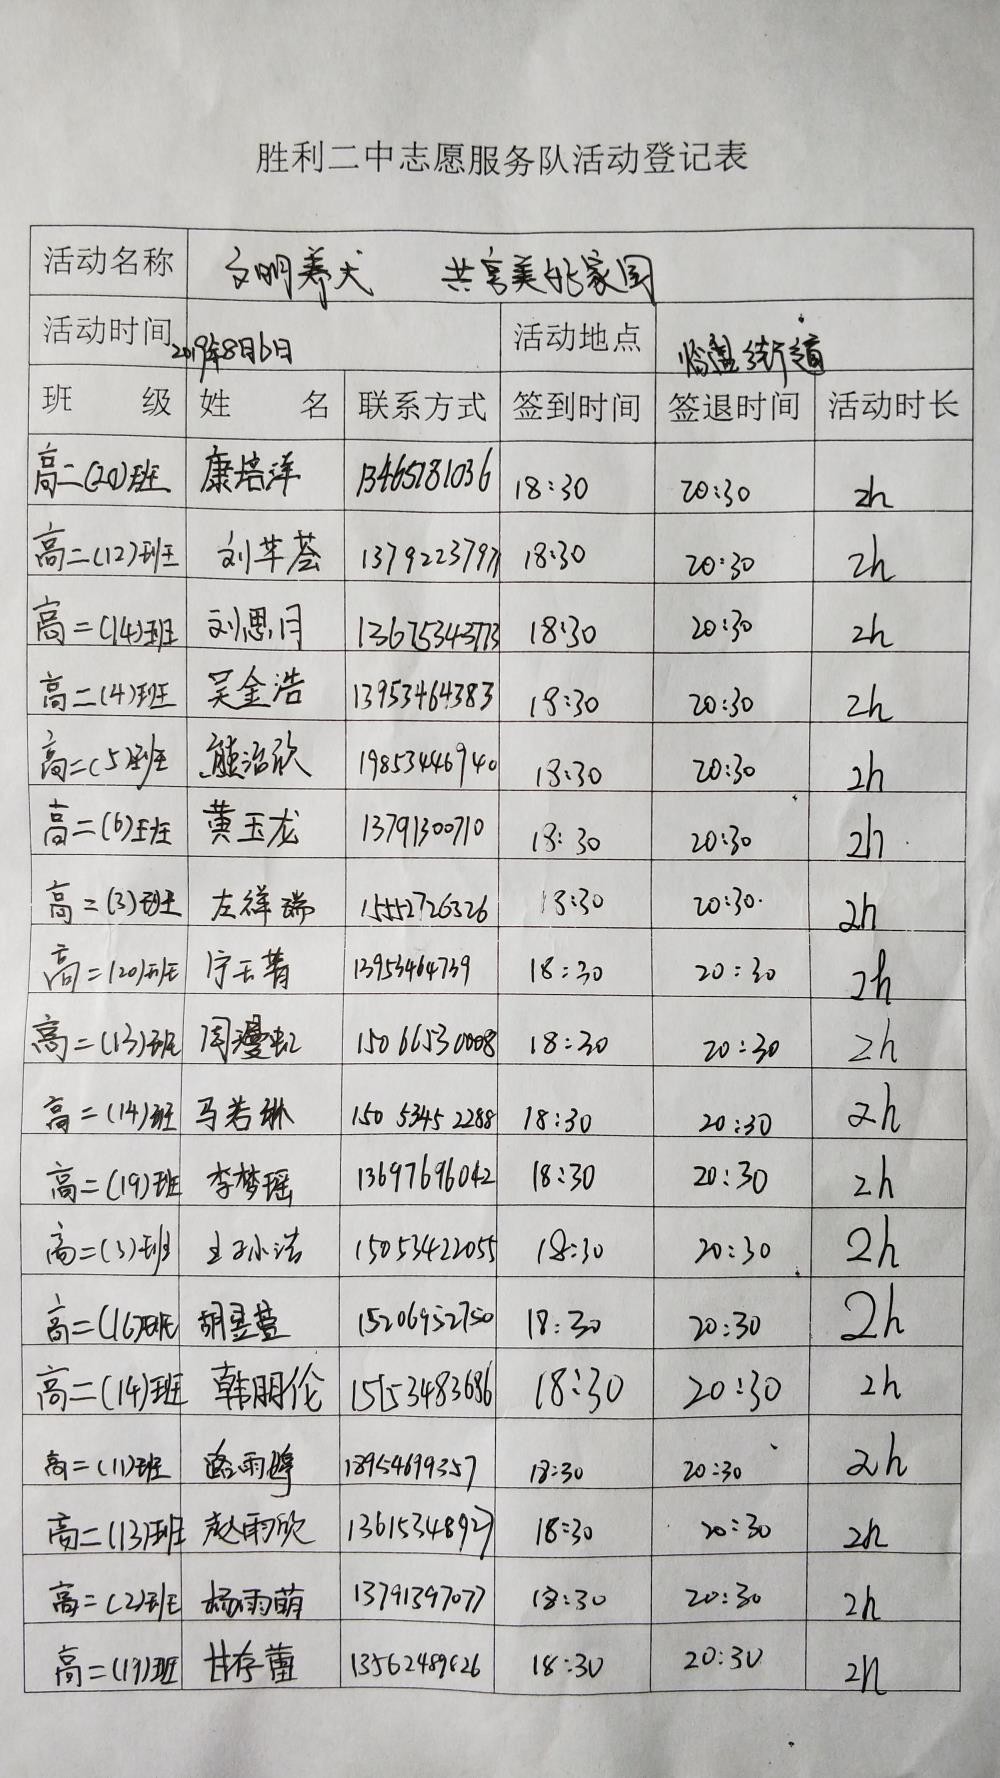 胜利二中志愿服务队活动登记表
活动名称 文明养犬 共享美好家园
活动时间 2019年8月6日 活动地点 临盘街道
班 级 姓 名 联系方式 签到时间 签退时间 活动时长
高二(20)班 康培洋 13465781036 18:30 20:30 2h
高二(12)班 刘芊荟 18:30 20:30 2h
高二(14)班 刘思月 13675343773 18:30 20:30 2h
高二(4)班 吴金浩 13953464383 18:30 20:30 2h
高二(5)班 熊治欣 19853446940 18:30 20:30 2h
高二(6)班 黄玉龙 13791300710 18:30 20:30 2h
高二(3)班 左祥瑞 15552726326 18:30 20:30 2h
高二(20)班 13953464739 18:30 20:30 2h
高二(13)班 周漫虹 15066530008 18:30 20:30 2h
高二(14)班 马若琳 150 5345 2288 18:30 20:30 2h
高二(19)班 李梦瑶 13697696042 18:30 20:30 2h
高二(3)班 15053422055 18:30 20:30 2h
高二(16)班 胡昱萱 15206952750 18:30 20:30 2h
高二(14)班 韩朋伦 15153483686 18:30 20:30 2h
高二(11)班 18954699357 18:30 20:30 2h
高二(13)班 赵雨欣 13615348927 18:30 20:30 2h
高二(2)班 杨雨萌 13791397077 18:30 20:30 2h
高二(19)班 甘存蕾 18:30 20:30 2h